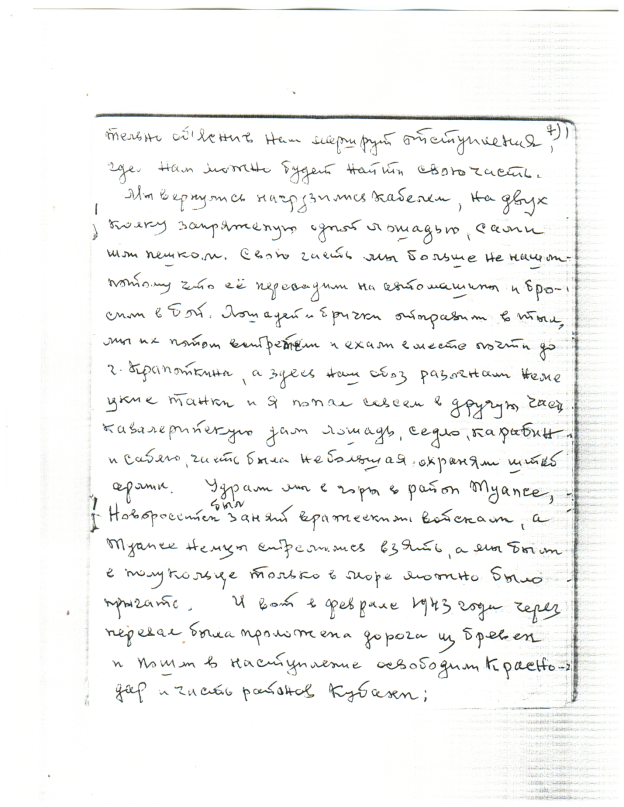 7)
тельно об'яснив нам маршрут отступления,
где нам можно будет найти свою часть.
Мы вернулись нагрузились кабелем, на двух
колку запряженую одной лошадью, сами
шли пешком. Свою часть мы больше не нашли-
потому что её переводили на автомашины и бро-
сили в бой. Лошадей и брички отправили в тыл,
мы их потом встретили и ехали вместе почти до
г. Крапоткина, а здесь наш обоз разогнали неме
цкие танки и я попал совсем в другую часть
кавалерийскую дали лошадь, седло, карабин
и саблю, часть была небольшая охраняли штаб
армии. Удрали мы в горы в район Туапсе,
Новоросстск был занят вражескими войсками, а
Туапсе немцы стремились взять, а мы были
в полукольце только в море можно было
прыгать. И вот в феврале 1943 года через
перевал была проложена дорога из бревен
и пошли в наступление освободили Красно-
дар и часть районов Кубани;